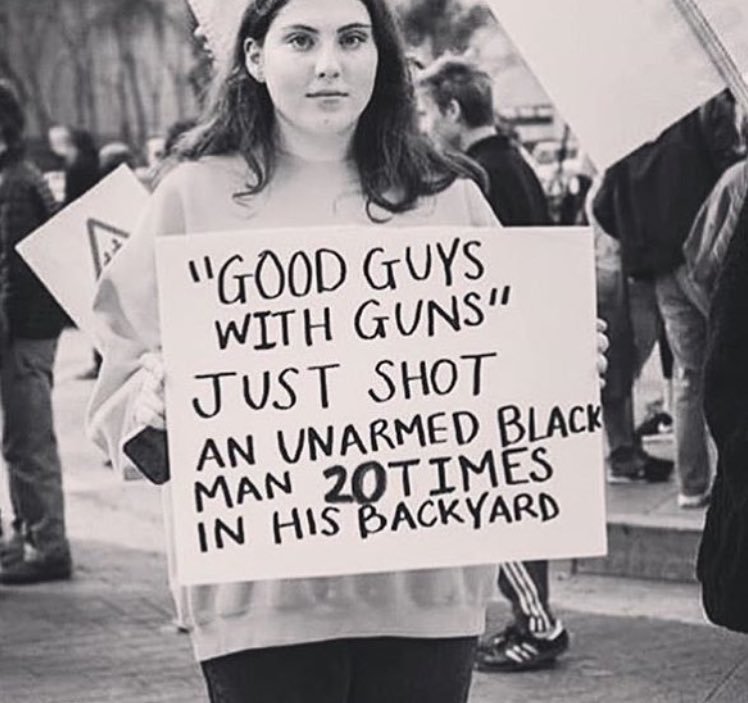 "GOOD GUYS
WITH GUNS"
JUST SHOT
AN UNARMED BLACK
MAN 20 TIMES
IN HIS BACKYARD